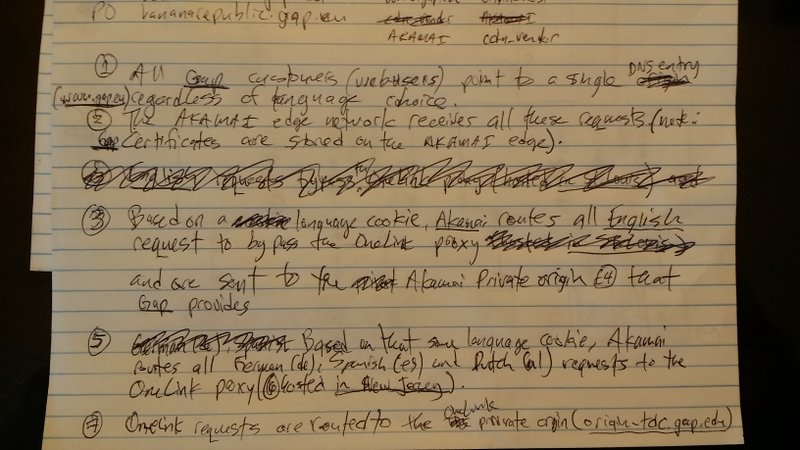 PO bananarepublic.gap.eu
AKAMAI cdn_vendor
① All Gap customers (web users) point to a single DNS entry
(www.gap.eu) regardless of language choice.
② The AKAMAI edge network receives all these requests (note:
Gap Certificates are stored on the AKAMAI edge).
③ Based on a language cookie, Akamai routes all English
request to bypass the OneLink proxy
and are sent to the Akamai Private origin ④ that
Gap provides
⑤ Based on that same language cookie, Akamai
routes all German (de), Spanish (es) and Dutch (nl) requests to the
OneLink poxy (⑥ hosted in New Jersey).
⑦ OneLink requests are routed to the OneLink private orgin (origin-tdc.gap.edu)